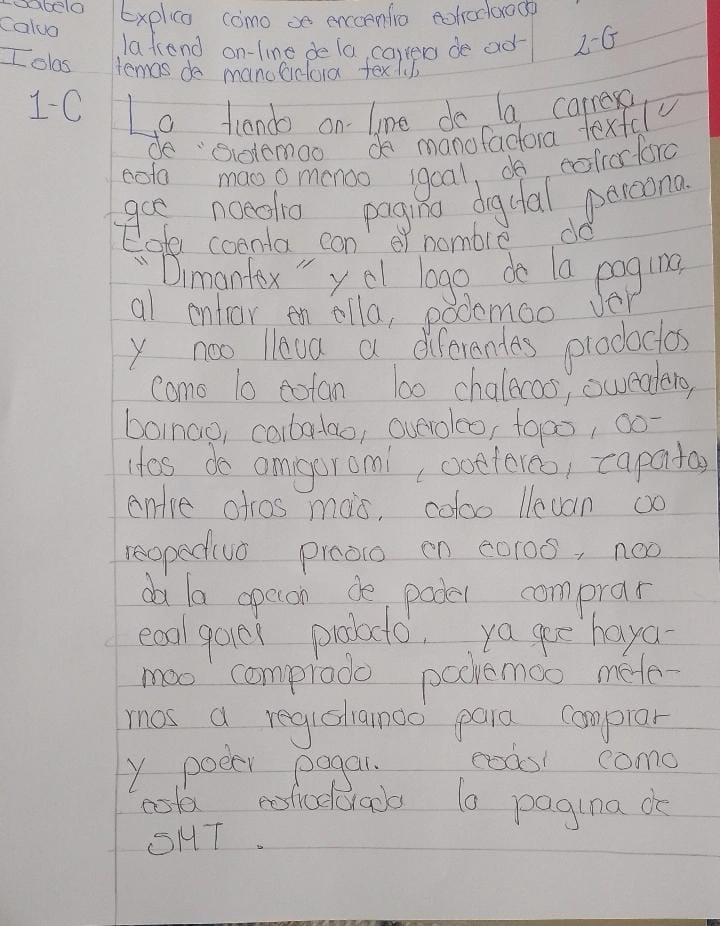 Isabela
Calva
Islas
Explica como se encuentra estructurado
la tiend on-line de la carrera de sis-
temas de manofactora textil
1-G
1-C
La tienda on-line de la carrera
de sistemas de manofactora textil
esta mas o menos igoal, de estroctora
que noestra pagina digital persona.
Esta coenta con el nombre de
"Dimantex" y el logo de la pagina,
al entrar en ella, podemos ver
y nos lleva a diferentes prodoctos
como lo estan los chalecos, sweaters,
boinas, corbatas, overoles, tops, os-
itos de amigoromi, soeteres, zapatos
entre otros mas. estos llevan so
respectivo precio en eoros, nos
da la opcion de poder comprar
coalqoier prodocto, ya que haya-
mos comprado podremos mete-
rnos a registrarnos para comprar
y poder pagar. como
esta estroctorada la pagina de
SMT.